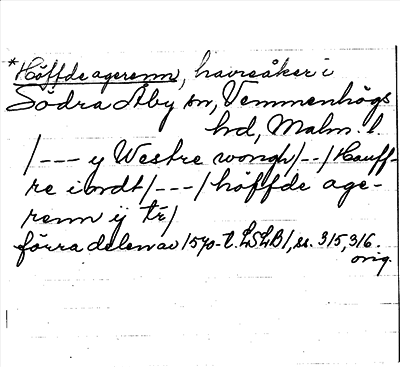 *Höffde agerenn, havreåker i
Södra Åby sn, Vemmenhögs
hd, Malm. l.
/--- y Westre wongh/--/Hauff-
re iordt/---/höffde age-
renn ij tr/
förra delen av 1570-t. LSLB1, ss. 315, 316.
orig.